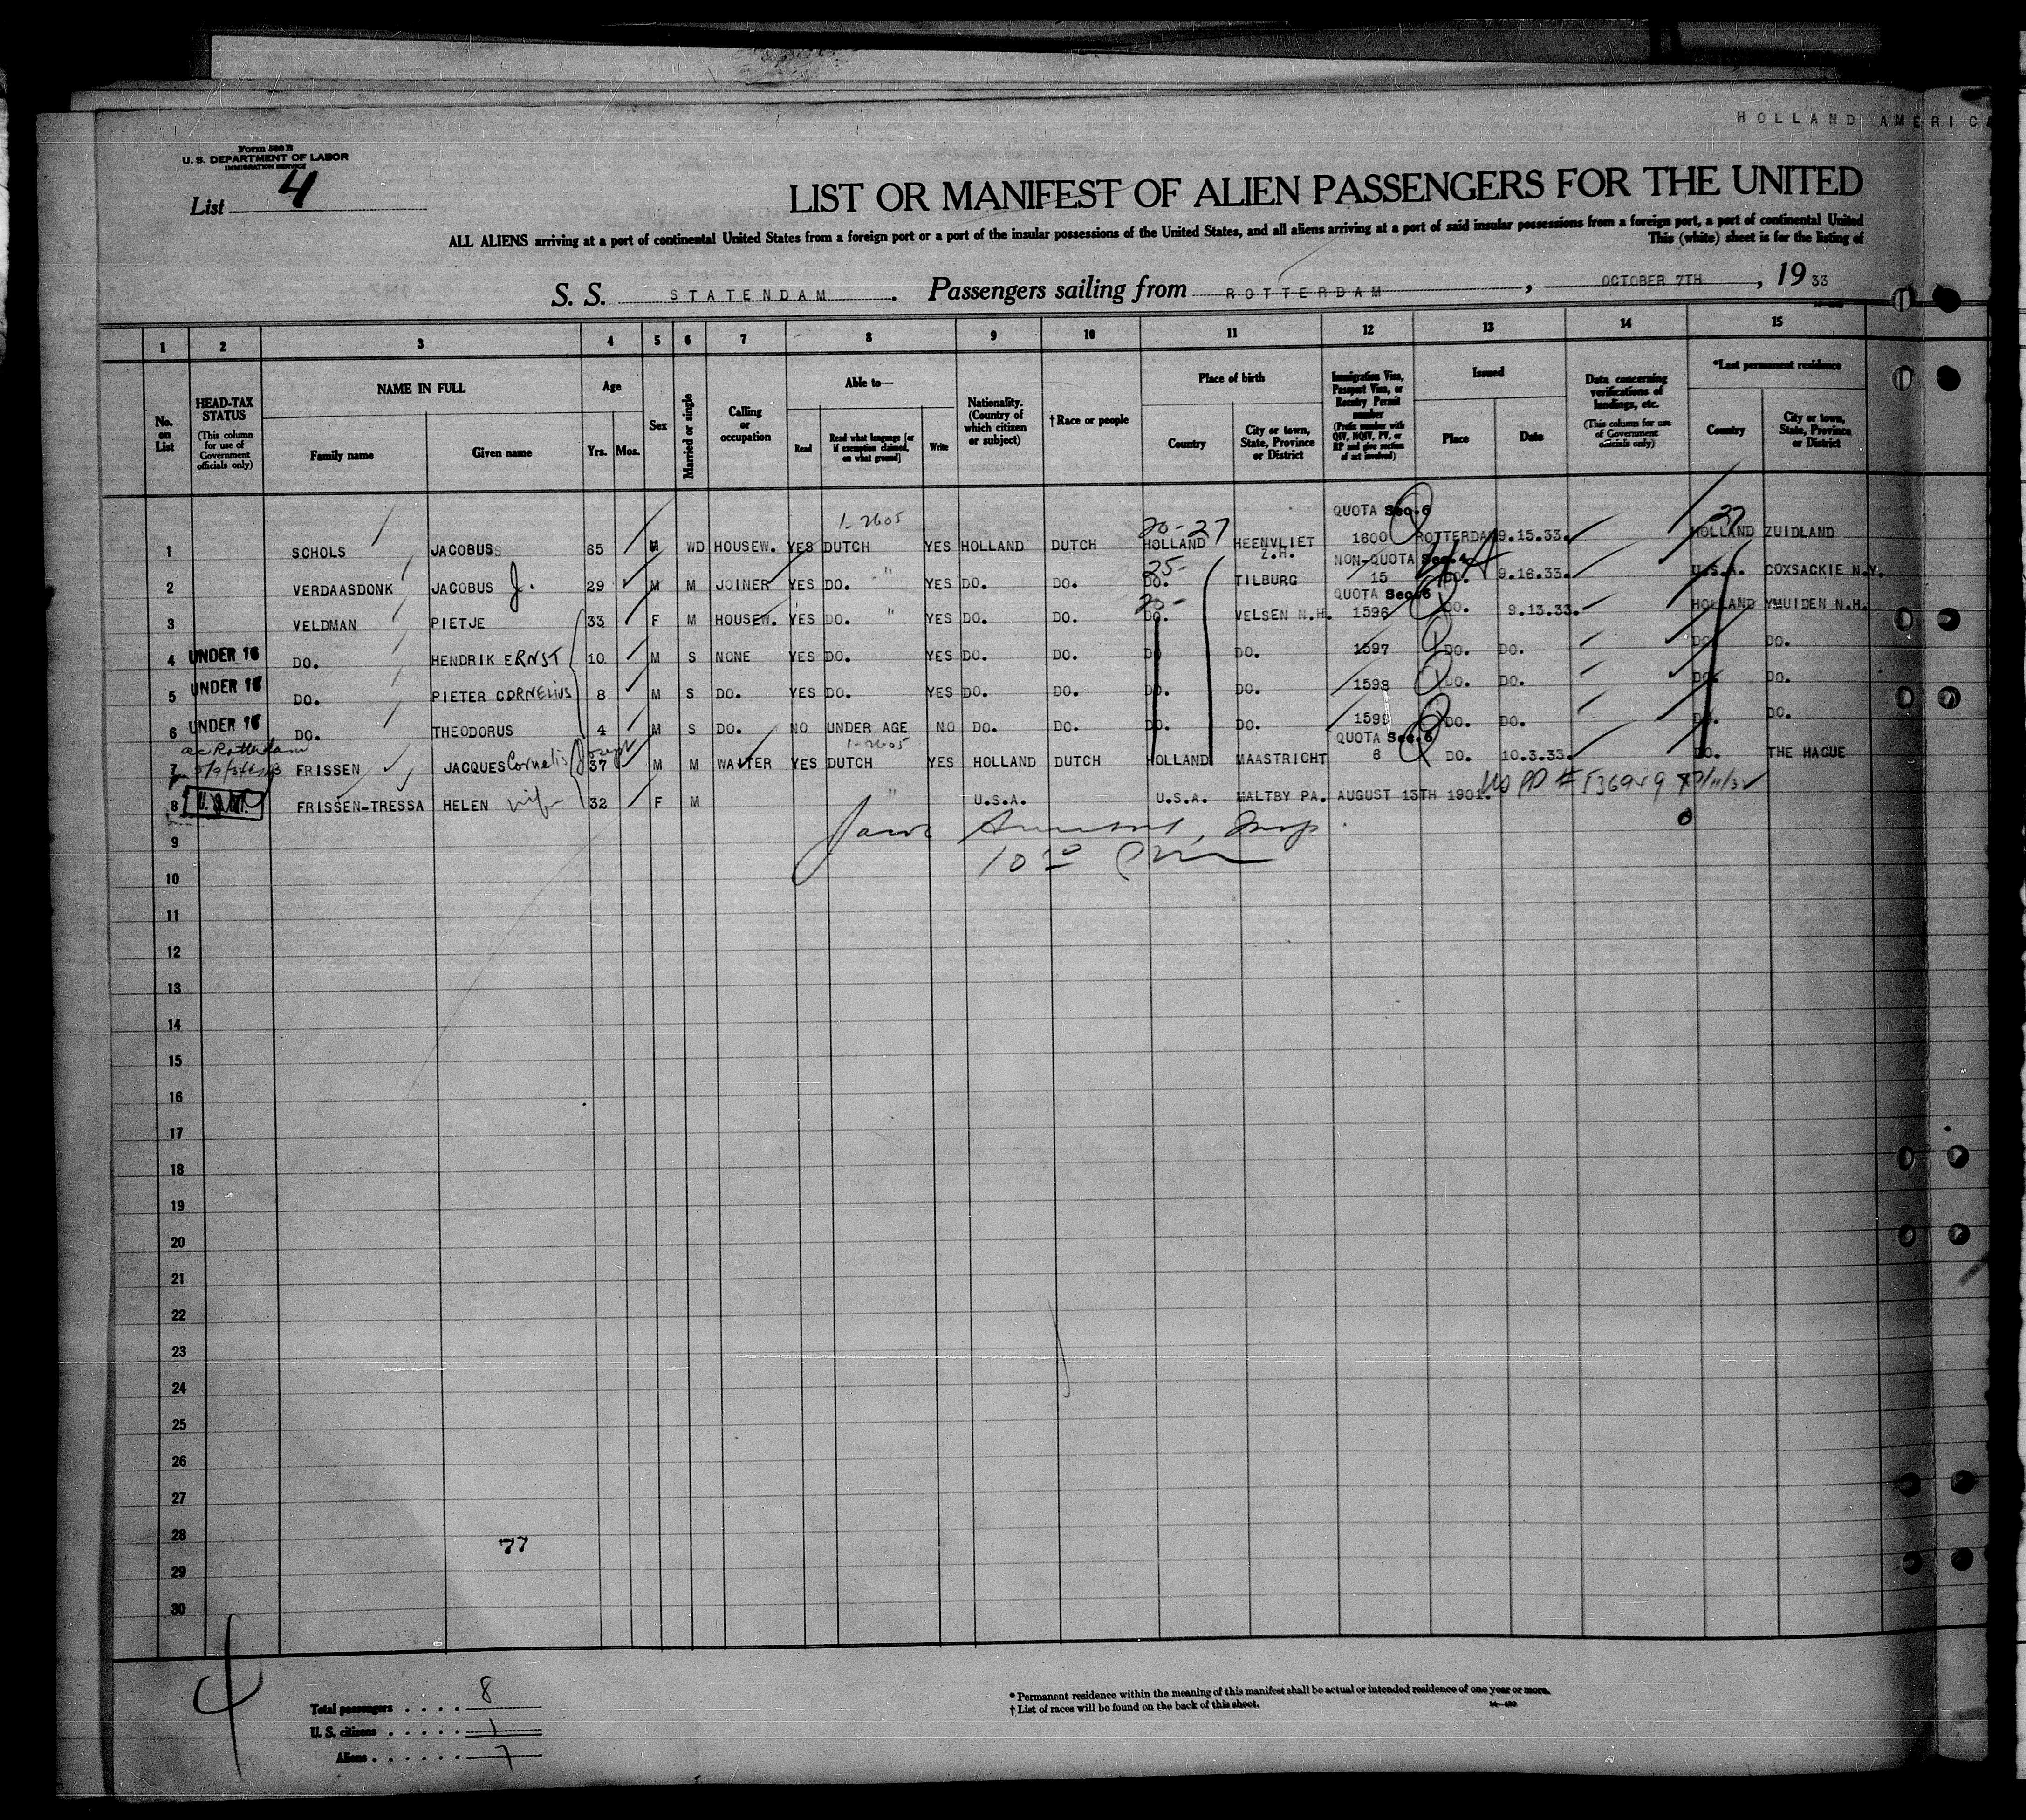 HOLLAND AMERICA
Form 500 B
U. S. DEPARTMENT OF LABOR
IMMIGRATION SERVICE
List 4
LIST OR MANIFEST OF ALIEN PASSENGERS FOR THE UNITED
ALL ALIENS arriving at a port of continental United States from a foreign port or a port of the insular possessions of the United States, and all aliens arriving at a port of said insular possessions from a foreign port, a port of continental United
This (white) sheet is for the listing of
S. S. STATENDAM. Passengers sailing from ROTTERDAM, OCTOBER 7TH, 19 33
1 2 3 4 5 6 7 8 9 10 11 12 13 14 15
No. on List
HEAD-TAX STATUS (This column for use of Government officials only)
NAME IN FULL Family name Given name
Age Yrs. Mos.
Sex
Married or single
Calling or occupation
Able to— Read Read what language [or if exemption claimed, on what ground] Write
Nationality. (Country of which citizen or subject)
†Race or people
Place of birth Country City or town, State, Province or District
Immigration Visa, Passport Visa, or Reentry Permit number (Prefix number with QIV, NQIV, PV, or RP and give section of act involved)
Issued Place Date
Data concerning verifications of landings, etc. (This column for use of Government officials only)
*Last permanent residence Country City or town, State, Province or District
1-2605 20-27 QUOTA Sec. 6 27
1 SCHOLS JACOBUSS 65 M WD HOUSEW. YES DUTCH YES HOLLAND DUTCH HOLLAND HEENVLIET Z.H. 1600 ROTTERDAM 9.15.33. HOLLAND ZUIDLAND
25- NON-QUOTA Sec. 4
2 VERDAASDONK JACOBUS J. 29 M M JOINER YES DO. " YES DO. DO. DO. TILBURG 15 DO. 9.16.33. U.S.A. COXSACKIE N.Y.
20- QUOTA Sec. 6
3 VELDMAN PIETJE 33 F M HOUSEW. YES DO. " YES DO. DO. DO. VELSEN N.H. 1596 DO. 9.13.33. HOLLAND YMUIDEN N.H.
4 UNDER 16 DO. HENDRIK ERNST 10 M S NONE YES DO. YES DO. DO. DO DO. 1597 DO. DO. DO. DO.
5 UNDER 16 DO. PIETER CORNELIUS 8 M S DO. YES DO. YES DO. DO. DO. DO. 1598 DO. DO. DO. DO.
6 UNDER 16 DO. THEODORUS 4 M S DO. NO UNDER AGE NO DO. DO. DO. DO. 1599 DO. DO. DO. DO.
Rotterdam Joseph 1-2605 QUOTA Sec. 6
7 FRISSEN JACQUES Cornelis 37 M M WAITER YES DUTCH YES HOLLAND DUTCH HOLLAND MAASTRICHT 6 DO. 10.3.33. DO. THE HAGUE
8 FRISSEN-TRESSA HELEN wife 32 F M " U.S.A. U.S.A. MALTBY PA. AUGUST 13TH 1901.
9
10
11
12
13
14
15
16
17
18
19
20
21
22
23
24
25
26
27
28 77
29
30
4
Total passengers . . . . 8
U. S. citizens . . . . . 1
Aliens . . . . . . 7
* Permanent residence within the meaning of this manifest shall be actual or intended residence of one year or more.
† List of races will be found on the back of this sheet.